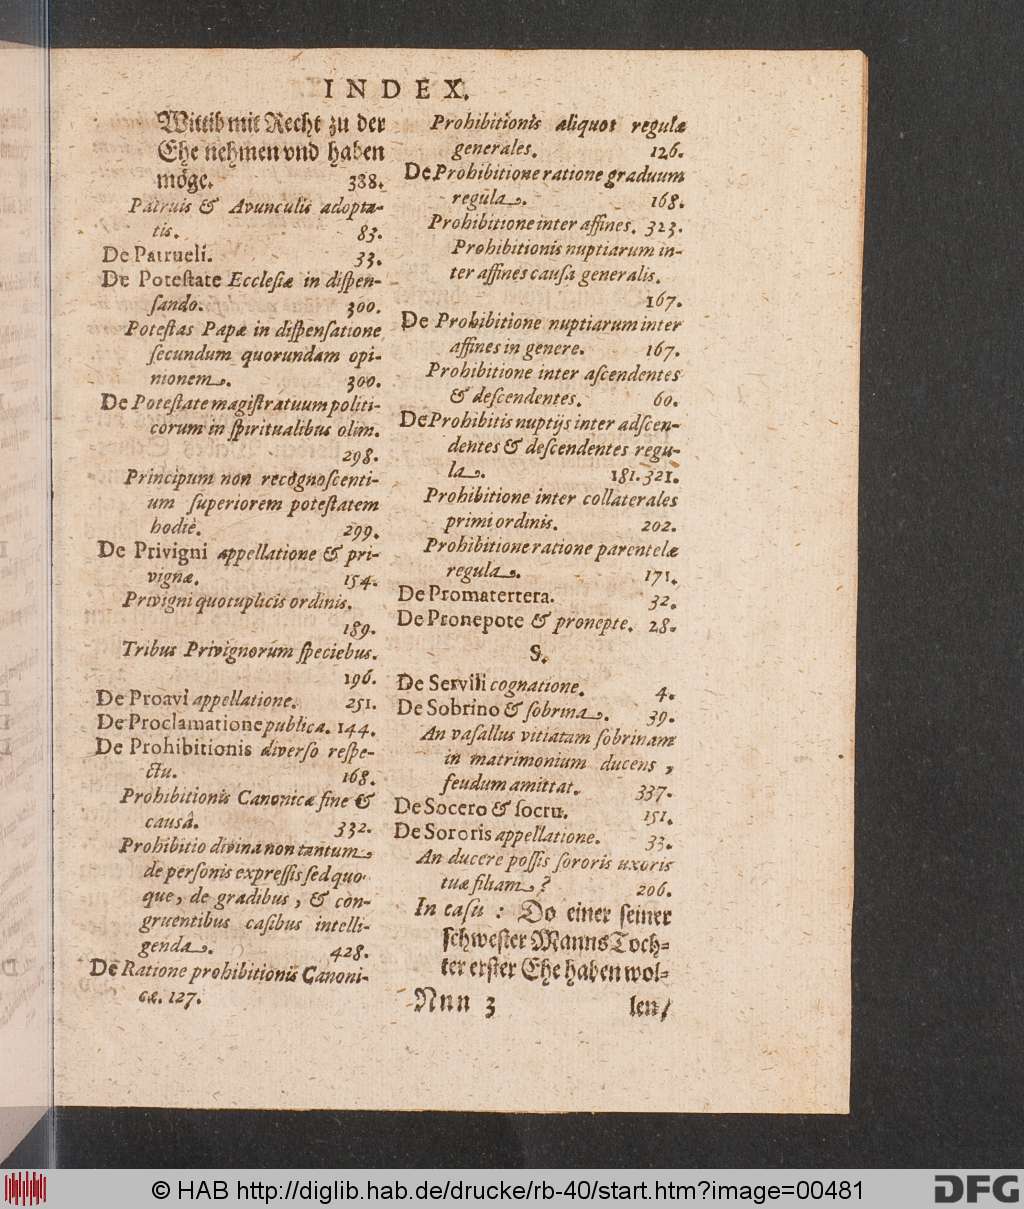 INDEX.
Wittib mit Recht zu der
Ehe nehmen vnd haben
möge. 388.
Patruis & Avunculis adopta-
tis. 83.
De Patrueli. 33.
De Potestate Ecclesiæ in dispen-
sando. 300.
Potestas Papæ in dispensatione
secundum quorundam opi-
nionem. 300.
De Potestate magistratuum politi-
corum in spiritualibus olim.
298.
Principum non recognoscenti-
um superiorem potestatem
hodiè. 299.
De Privigni appellatione & pri-
vignæ. 154.
Privigni quotuplicis ordinis.
189.
Tribus Privignorum speciebus.
196.
De Proavi appellatione. 251.
De Proclamatione publica. 144.
De Prohibitionis diverso respe-
ctu. 168.
Prohibitionis Canonicæ fine &
causâ. 332.
Prohibitio divina non tantum
de personis expressis sed quo-
que, de gradibus, & con-
gruentibus casibus intelli-
genda. 428.
De Ratione prohibitionis Canoni-
cæ. 127.
Prohibitionis aliquot regulæ
generales. 126.
De Prohibitione ratione graduum
regula. 168.
Prohibitione inter affines. 323.
Prohibitionis nuptiarum in-
ter affines causa generalis.
167.
De Prohibitione nuptiarum inter
affines in genere. 167.
Prohibitione inter ascendentes
& descendentes. 60.
De Prohibitis nuptijs inter adscen-
dentes & descendentes regu-
la. 181. 321.
Prohibitione inter collaterales
primi ordinis. 202.
Prohibitione ratione parentelæ
regula. 171.
De Promatertera. 32.
De Pronepote & pronepte. 28.
S.
De Servili cognatione. 4.
De Sobrino & sobrina. 39.
An vasallus vitiatam sobrinam
in matrimonium ducens,
feudum amittat. 337.
De Socero & socru. 151.
De Sororis appellatione. 33.
An ducere possis sororis uxoris
tuæ filiam? 206.
In casu: Do einer seiner
schwester Manns Toch-
ter erster Ehe haben wol-
Nnn 3 len/
© HAB http://diglib.hab.de/drucke/rb-40/start.htm?image=00481
DFG